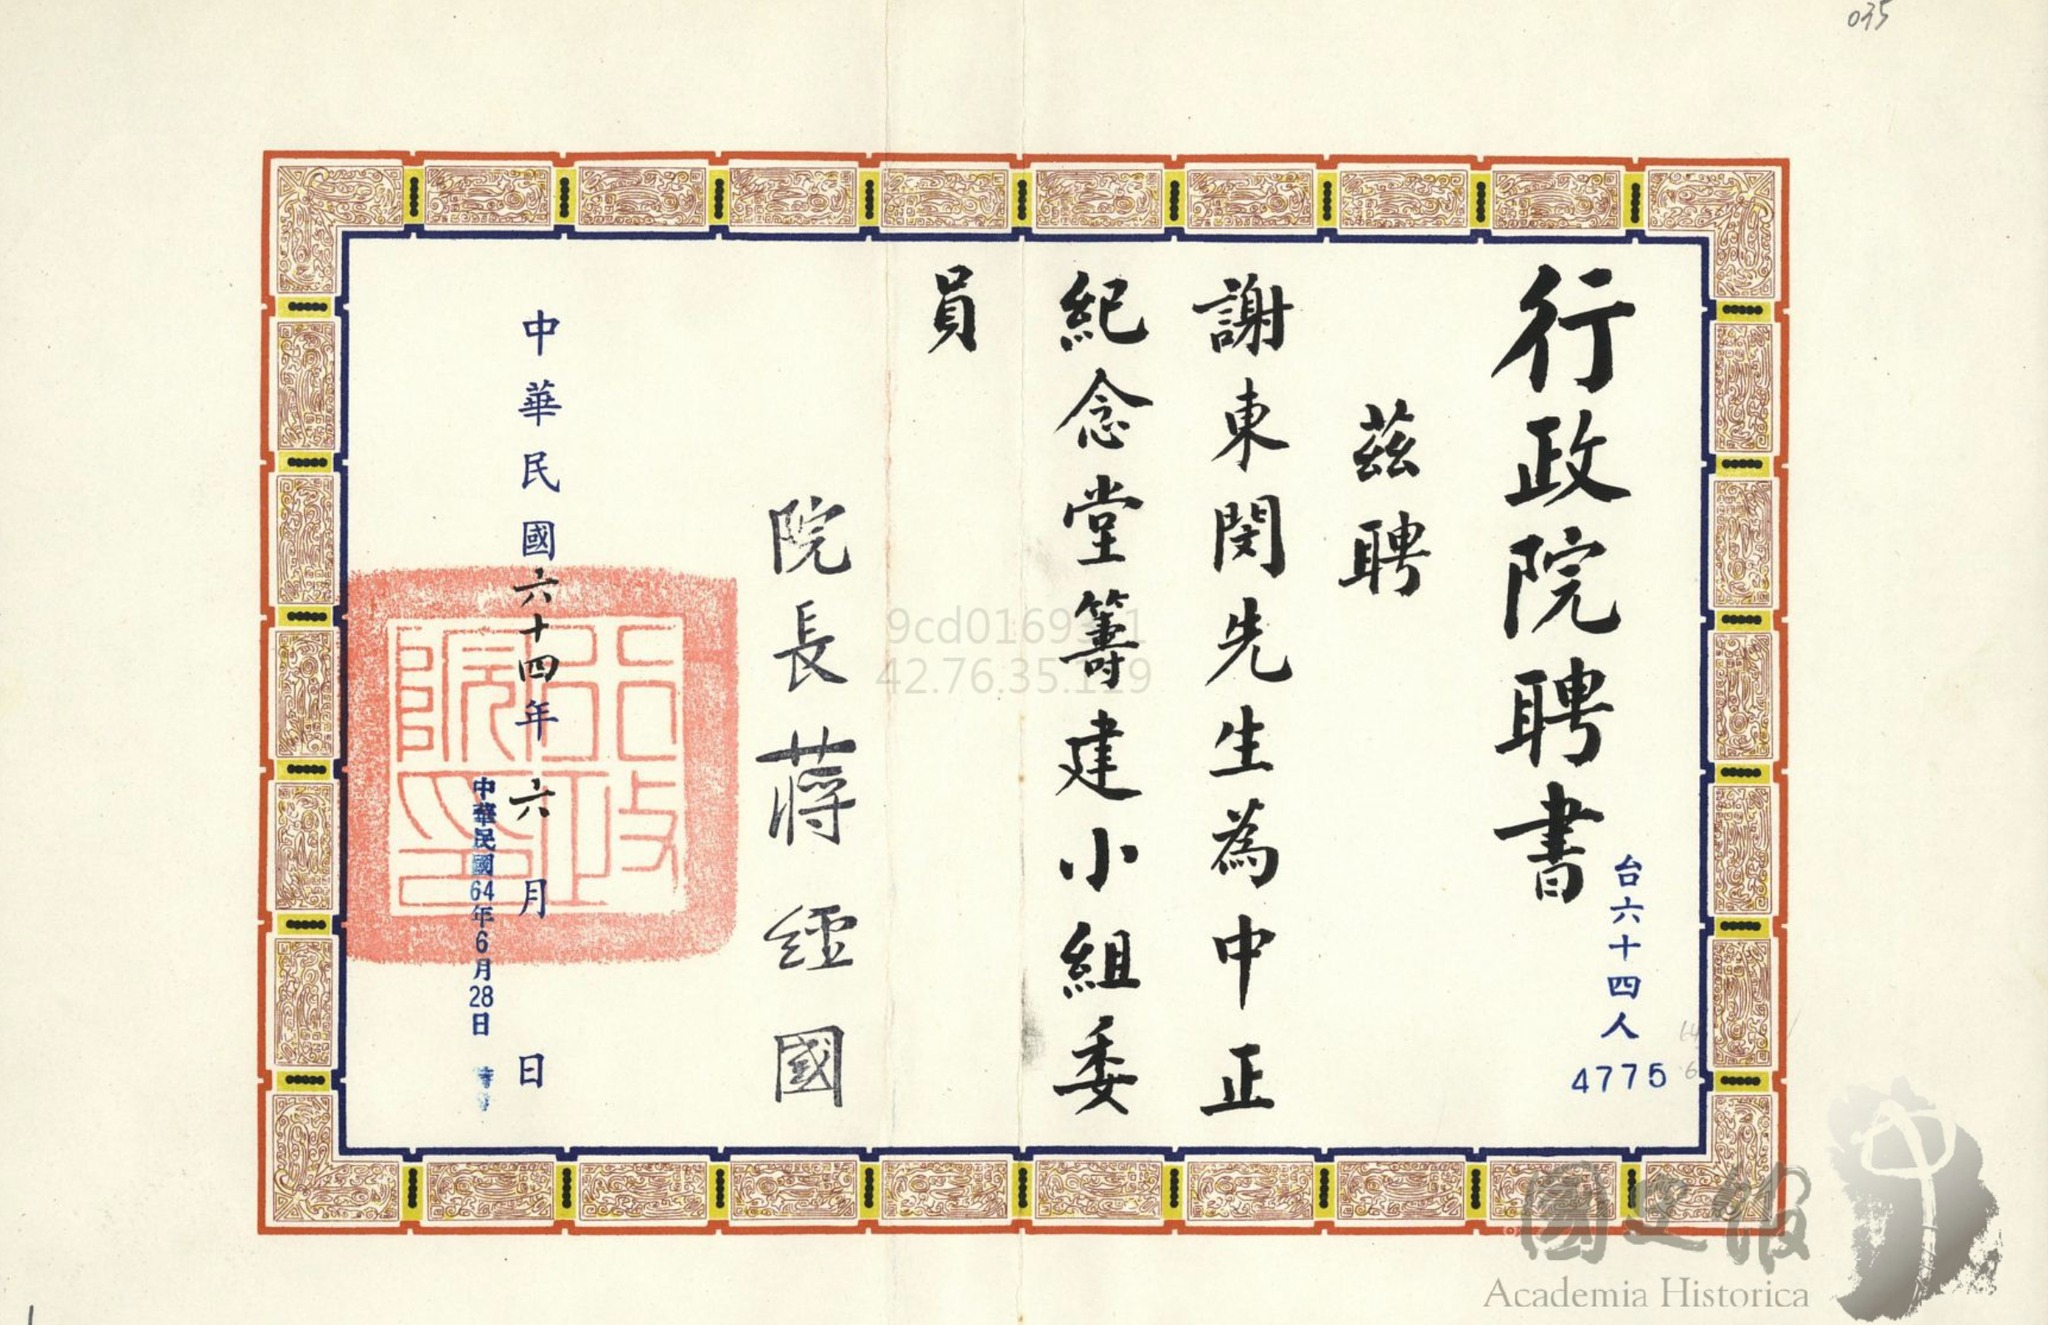 035
行政院聘書
台六十四人
4775
茲聘
謝東閔先生為中正
紀念堂籌建小組委
員
院長蔣經國
中華民國六十四年六月日
中華民國64年6月28日
行政院印
42.76.35.129
國史館
Academia Historica